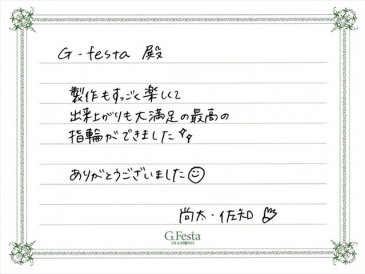 G-festa 殿
製作もすっごく楽しくて
出来上がりも大満足の最高の
指輪ができました
ありがとうございました
尚太・佐知
G.Festa
DIAMOND